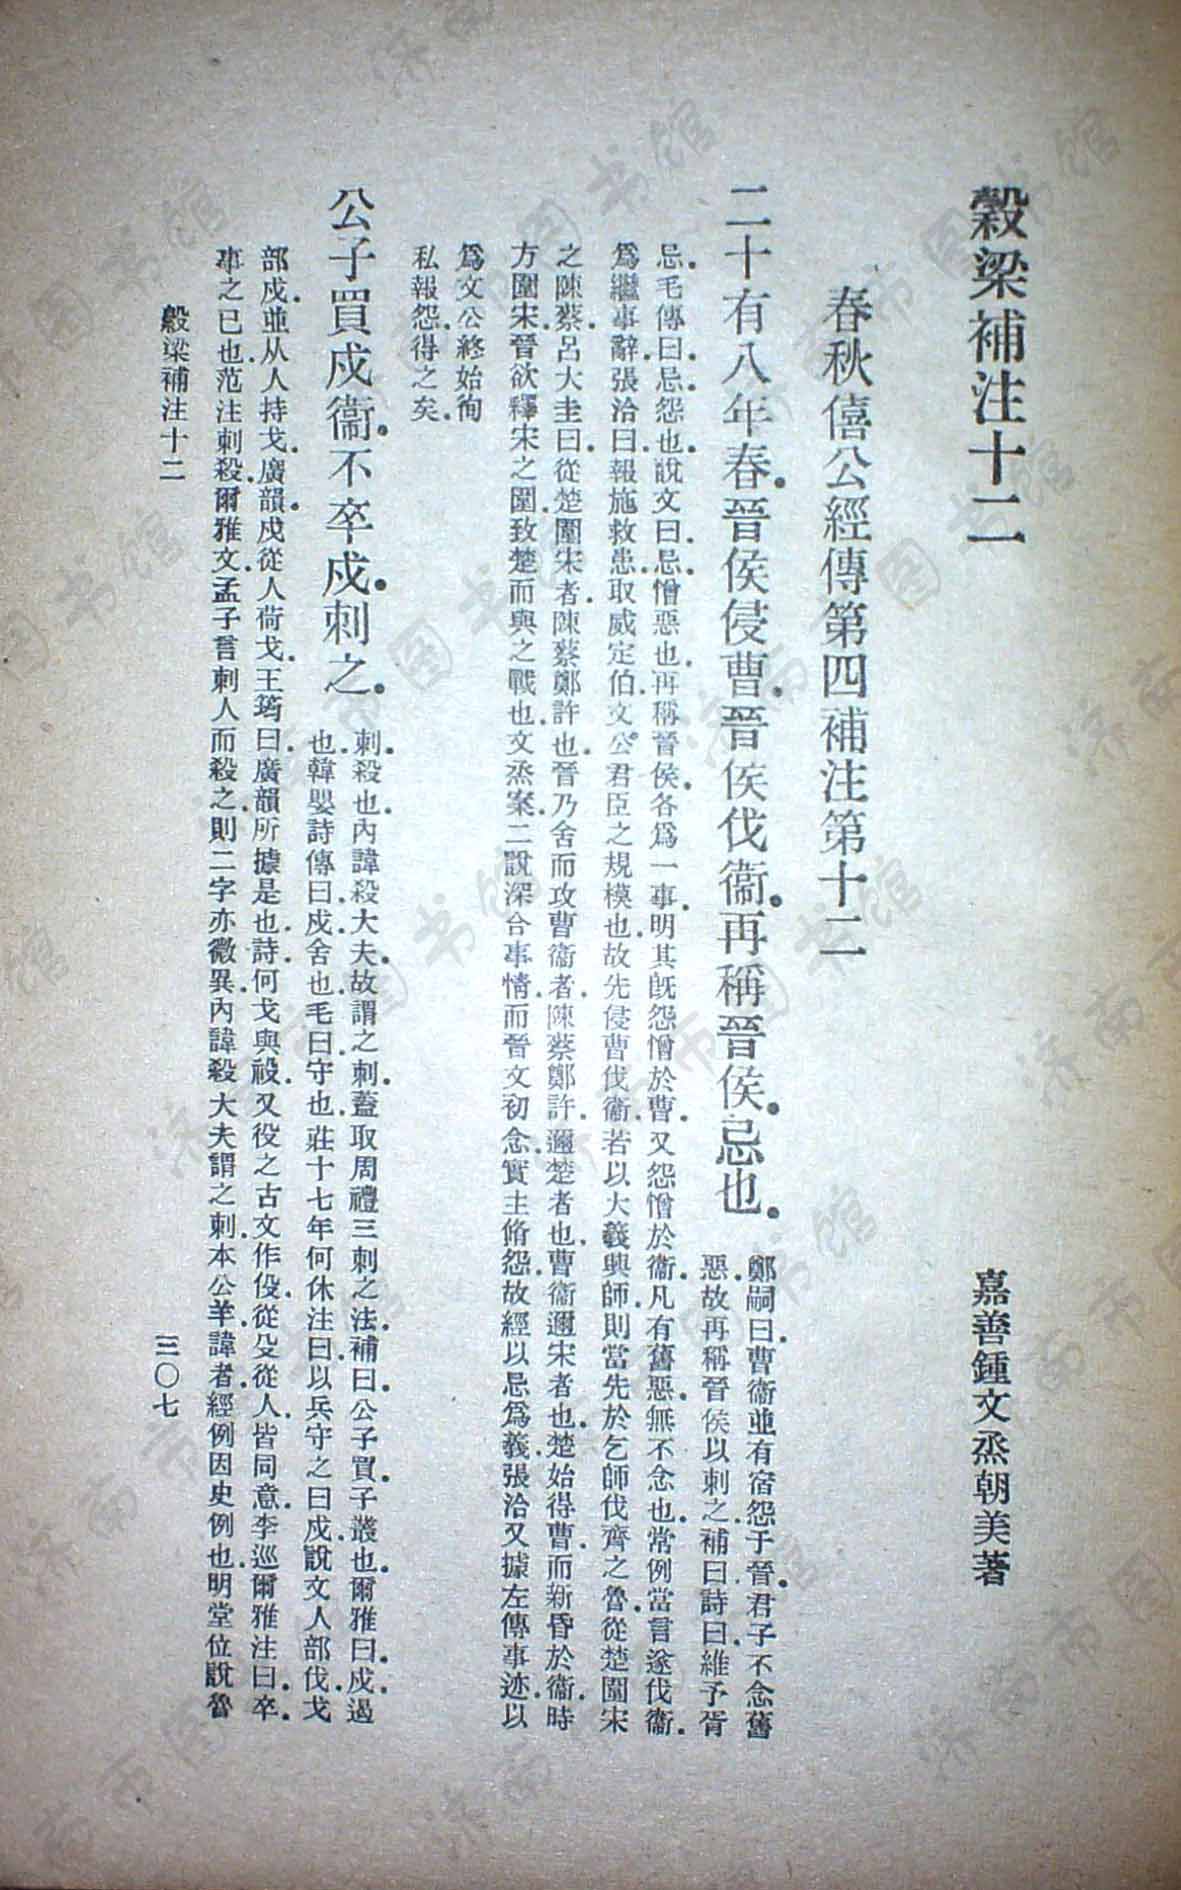 穀梁補注十二
嘉善鍾文烝朝美著
春秋僖公經傳第四補注第十二
二十有八年春。晉侯侵曹。晉侯伐衞。再稱晉侯。忌也。
鄭嗣曰。曹衞並有宿怨于晉。君子不念舊
惡。故再稱晉侯以刺之。補曰。詩曰。維予胥
忌。毛傳曰。忌。怨也。說文曰。忌。憎惡也。再稱晉侯。各爲一事。明其旣怨憎於曹。又怨憎於衞。凡有舊惡。無不念也。常例當言遂伐衞。
爲繼事辭。張洽曰。報施救患。取威定伯。文公君臣之規模也。故先侵曹伐衞。若以大義興師。則當先於乞師伐齊之魯。從楚圍宋
之陳蔡。呂大圭曰。從楚圍宋者。陳蔡鄭許也。晉乃舍而攻曹衞者。陳蔡鄭許。邇楚者也。曹衞邇宋者也。楚始得曹。而新昏於衞。時
方圍宋。晉欲釋宋之圍。致楚而與之戰也。文烝案。二說深合事情。而晉文初念。實主脩怨。故經以忌爲義。張洽又據左傳事迹。以
爲文公終始徇
私報怨。得之矣。
公子買戍衞。不卒戍。刺之。
刺。殺也。內諱殺大夫。故謂之刺。蓋取周禮三刺之法。補曰。公子買。子叢也。爾雅曰。戍。遏
也。韓嬰詩傳曰。戍。舍也。毛曰。守也。莊十七年何休注曰。以兵守之曰戍。說文人部伐。戈
部戍。並从人持戈。廣韻。戍從人荷戈。王筠曰。廣韻所據是也。詩。何戈與祋。又役之古文作伇。從殳從人。皆同意。李巡爾雅注曰。卒。
事之已也。范注刺殺。爾雅文。孟子言刺人而殺之。則二字亦微異。內諱殺大夫謂之刺。本公羊。諱者。經例因史例也。明堂位說魯
穀梁補注十二
三〇七